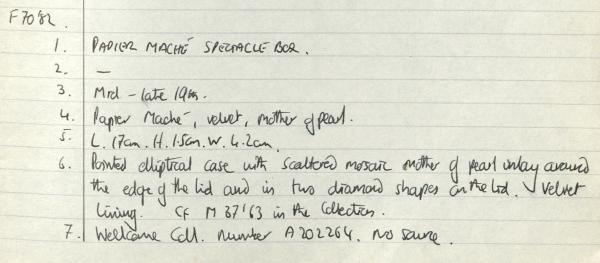 F70'82.
1. PAPIER MACHÉ SPECTACLE BOX.
2. —
3. Mid - late 19th.
4. Papier Maché, velvet, mother of pearl.
5. L. 17cm. H. 1.5cm. W. 4.2cm.
6. Pointed elliptical case with scattered mosaic mother of pearl inlay around
the edge of the lid and in two diamond shapes on the lid. Velvet
lining. CF M 37'63 in the Collection.
7. Wellcome Coll. number A202264. No source.